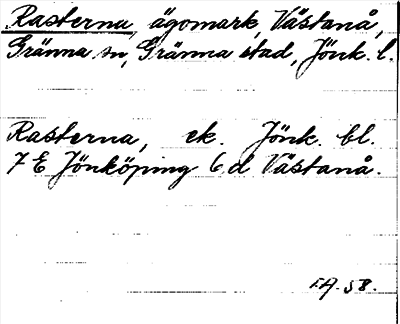 Rasterna, ägomark, Västanå,
Gränna sn, Gränna stad, Jönk. l.
Rasterna, ek. Jönk. bl.
7 E Jönköping 6 d Västanå.
I.A. 58.